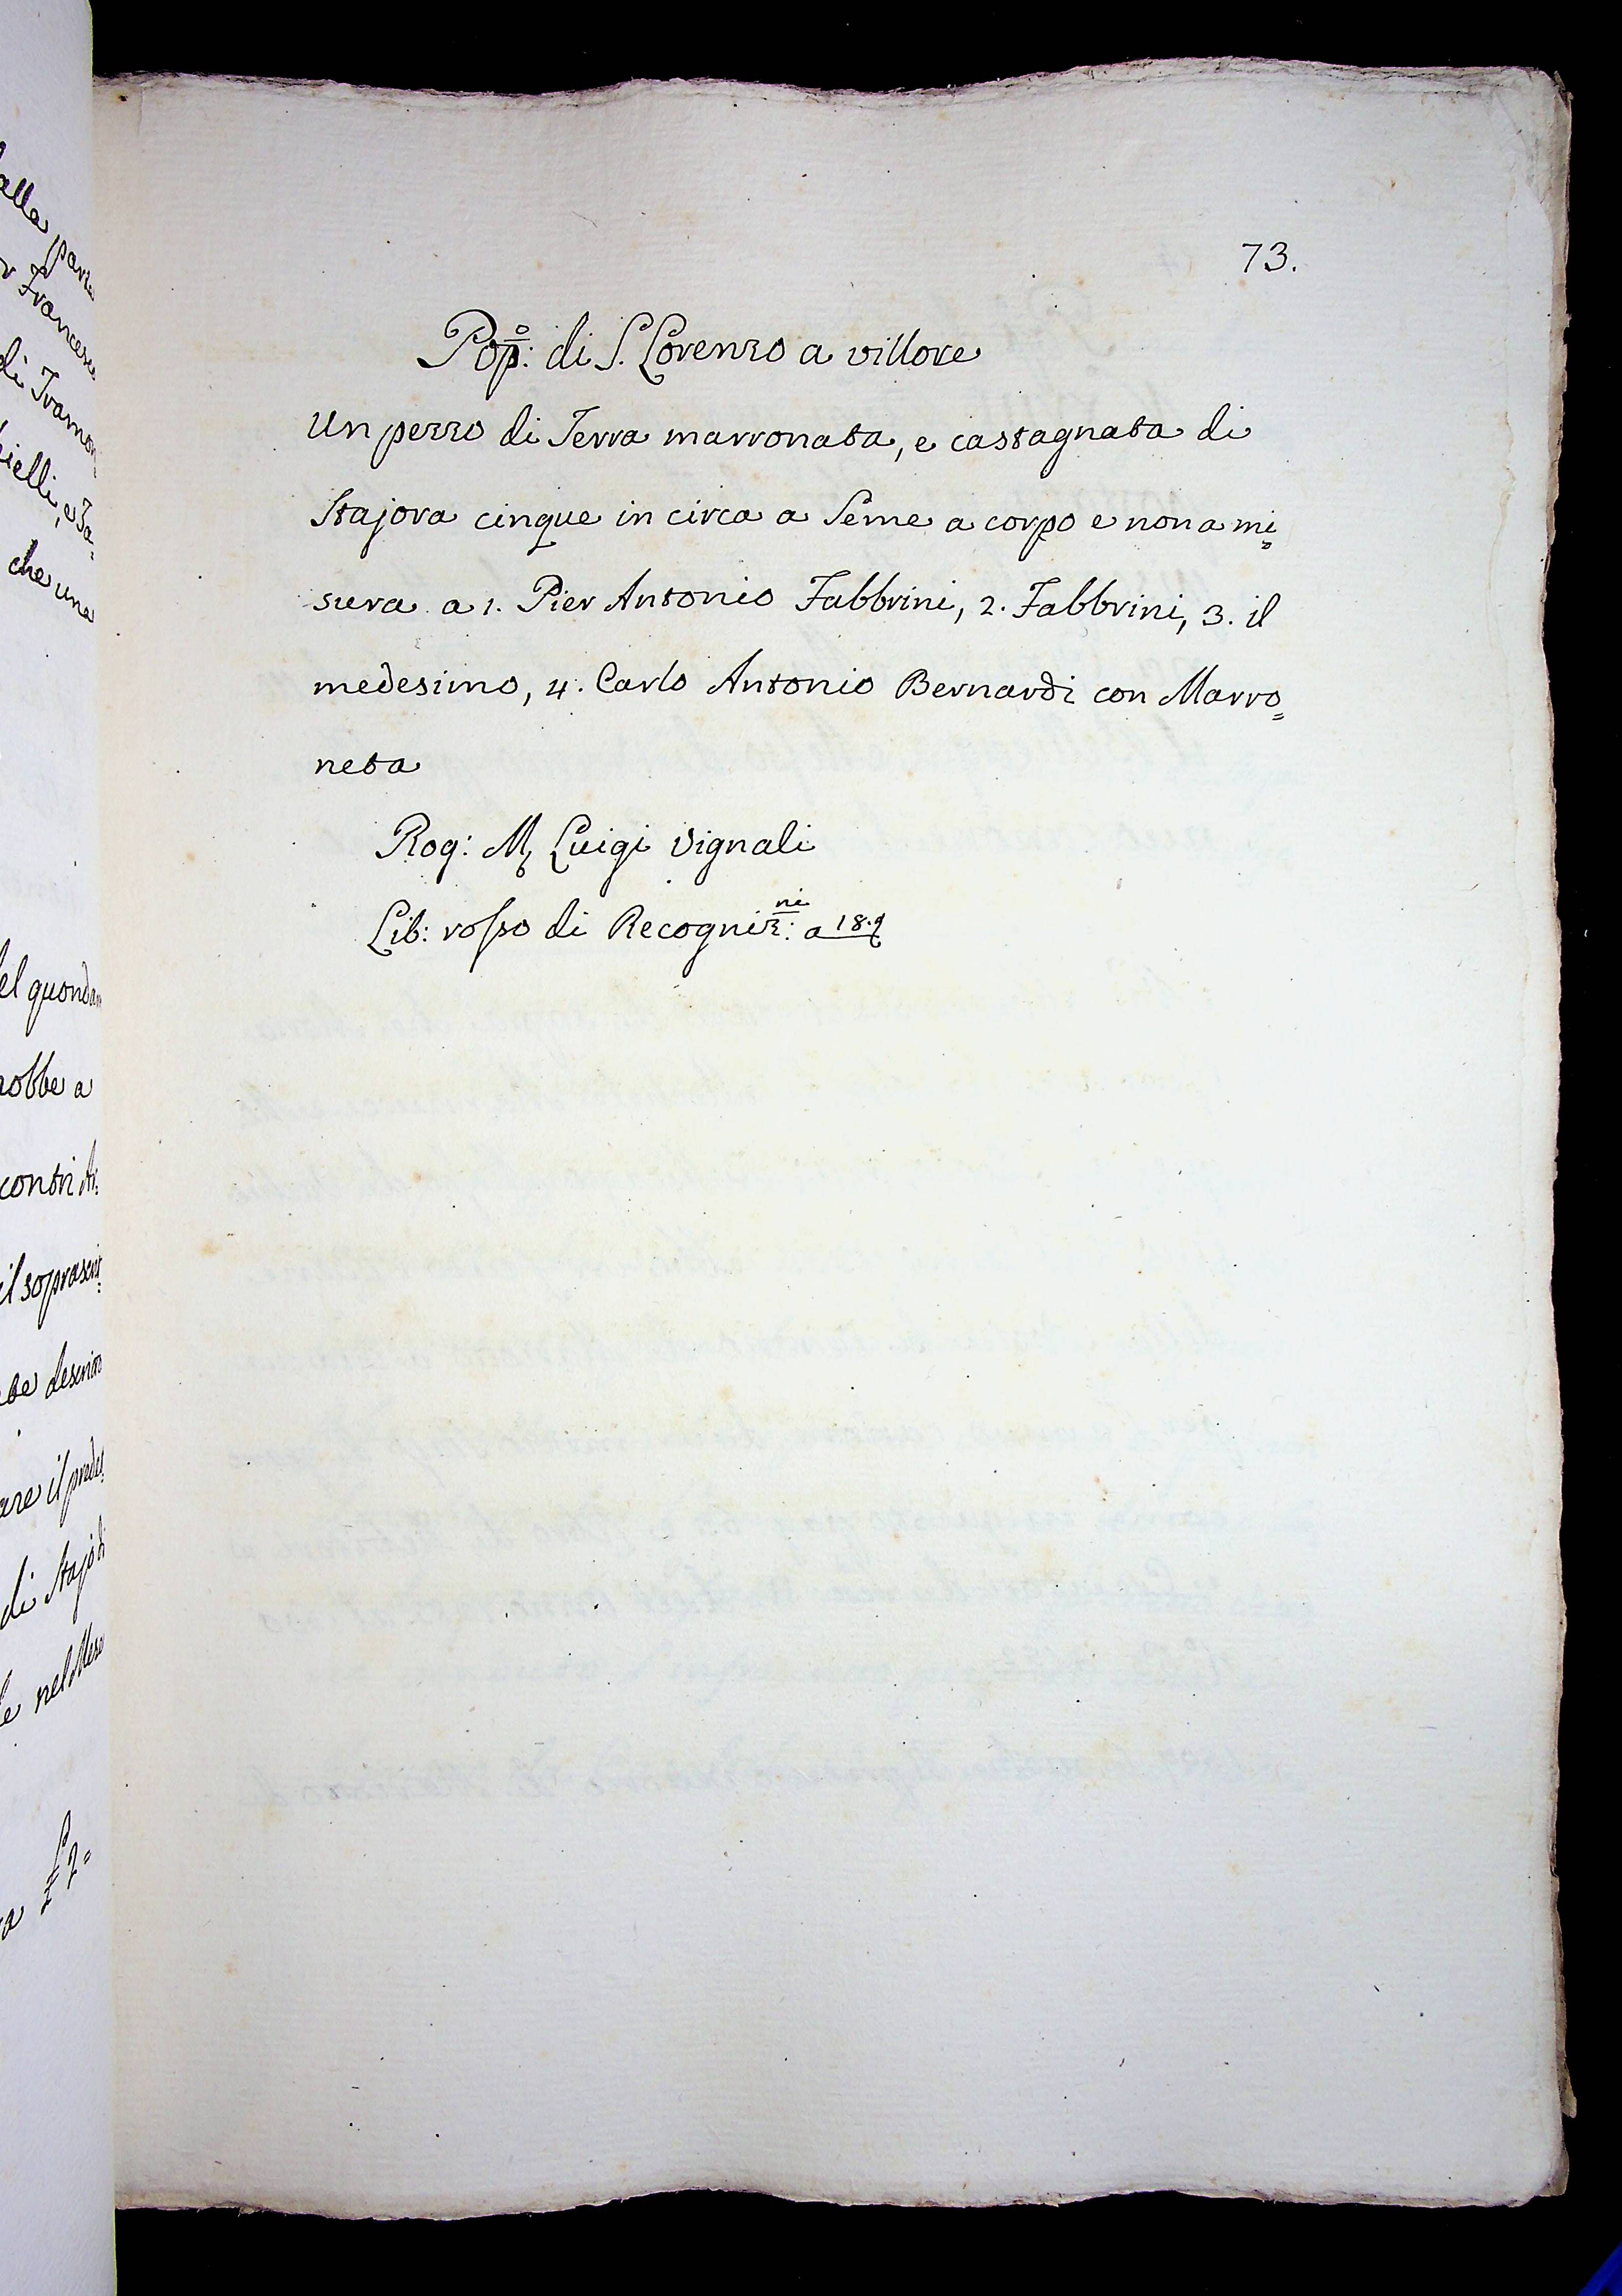 73.
Pop:º di S. Lorenzo a villore
Un pezzo di Terra marronata, e castagnata di
Stajora cinque in circa a Seme a corpo e non a mi=
sura a 1. Pier Antonio Fabbrini, 2. Fabbrini, 3. il
medesimo, 4. Carlo Antonio Bernardi con Marro=
neta
Rog: M, Luigi Vignali
Lib: rosso di Recogniz:ni a
alla
Francesc
che una
el quonda
nobbe a
contri
il soprascri
di Stajo